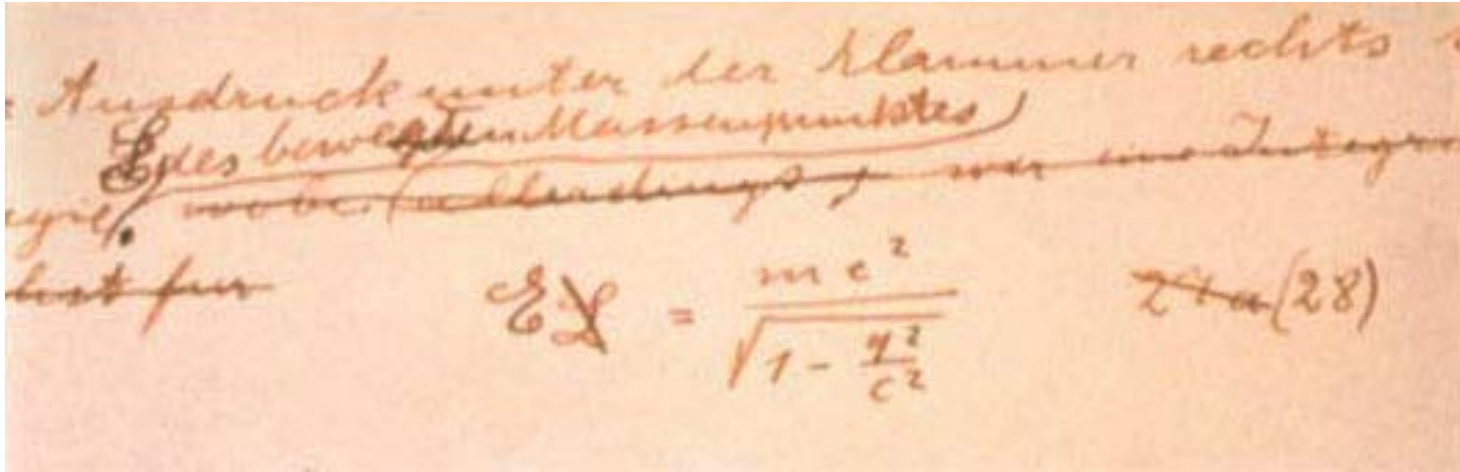 Ausdruck unter der Klammer rechts
E des bewegten Massenpunktes
egie. wobei (allerdings) wir eine Integr
hst fur
EL = mc² / √(1 - q²/c²) 27a (28)